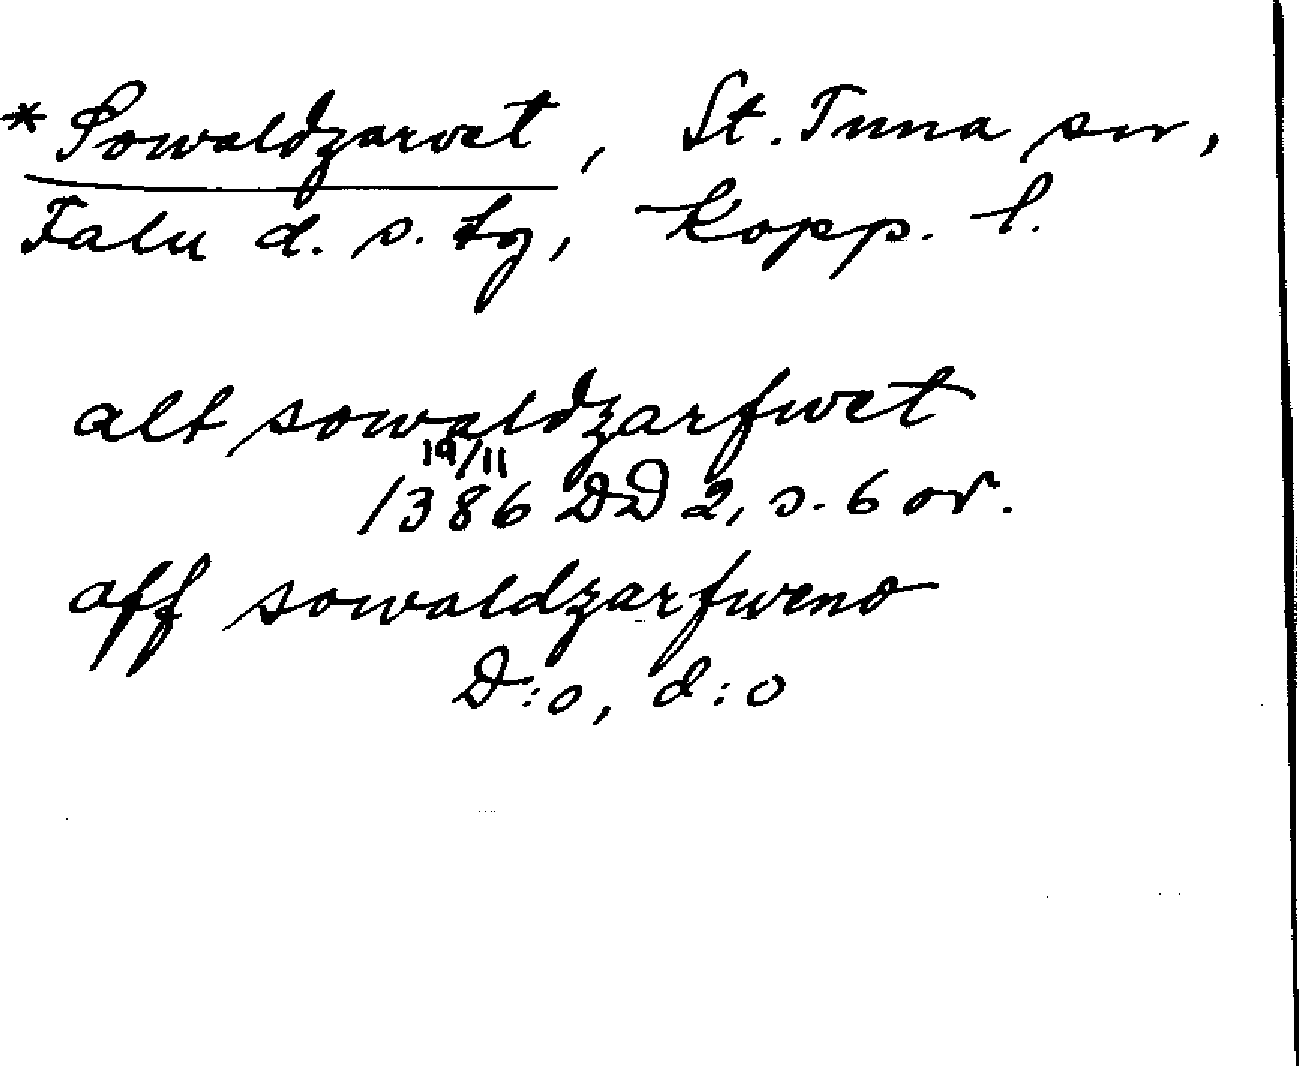 *Sowaldzarvet, St. Tuna sn,
Falu d. s. tg, Kopp. l.
alt sowaldzarfwet
19/11
1386 DD 2, s. 6 or.
aff sowaldzarfweno
D:o, d:o